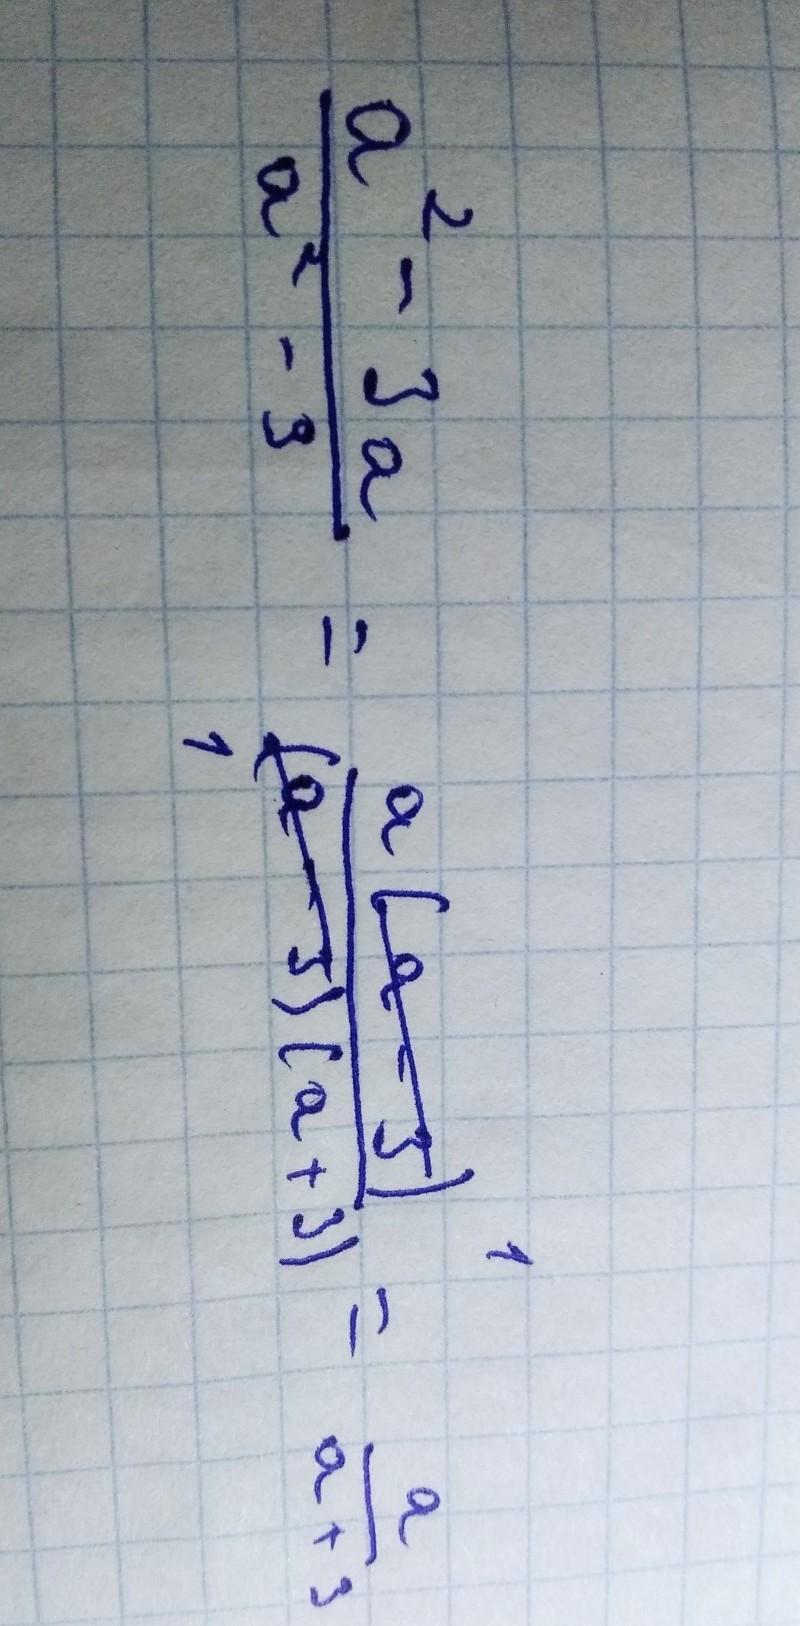 a² - 3a / a² - 9 = a(a - 3) 1 / 1 (a - 3)(a + 3) = a / a + 3